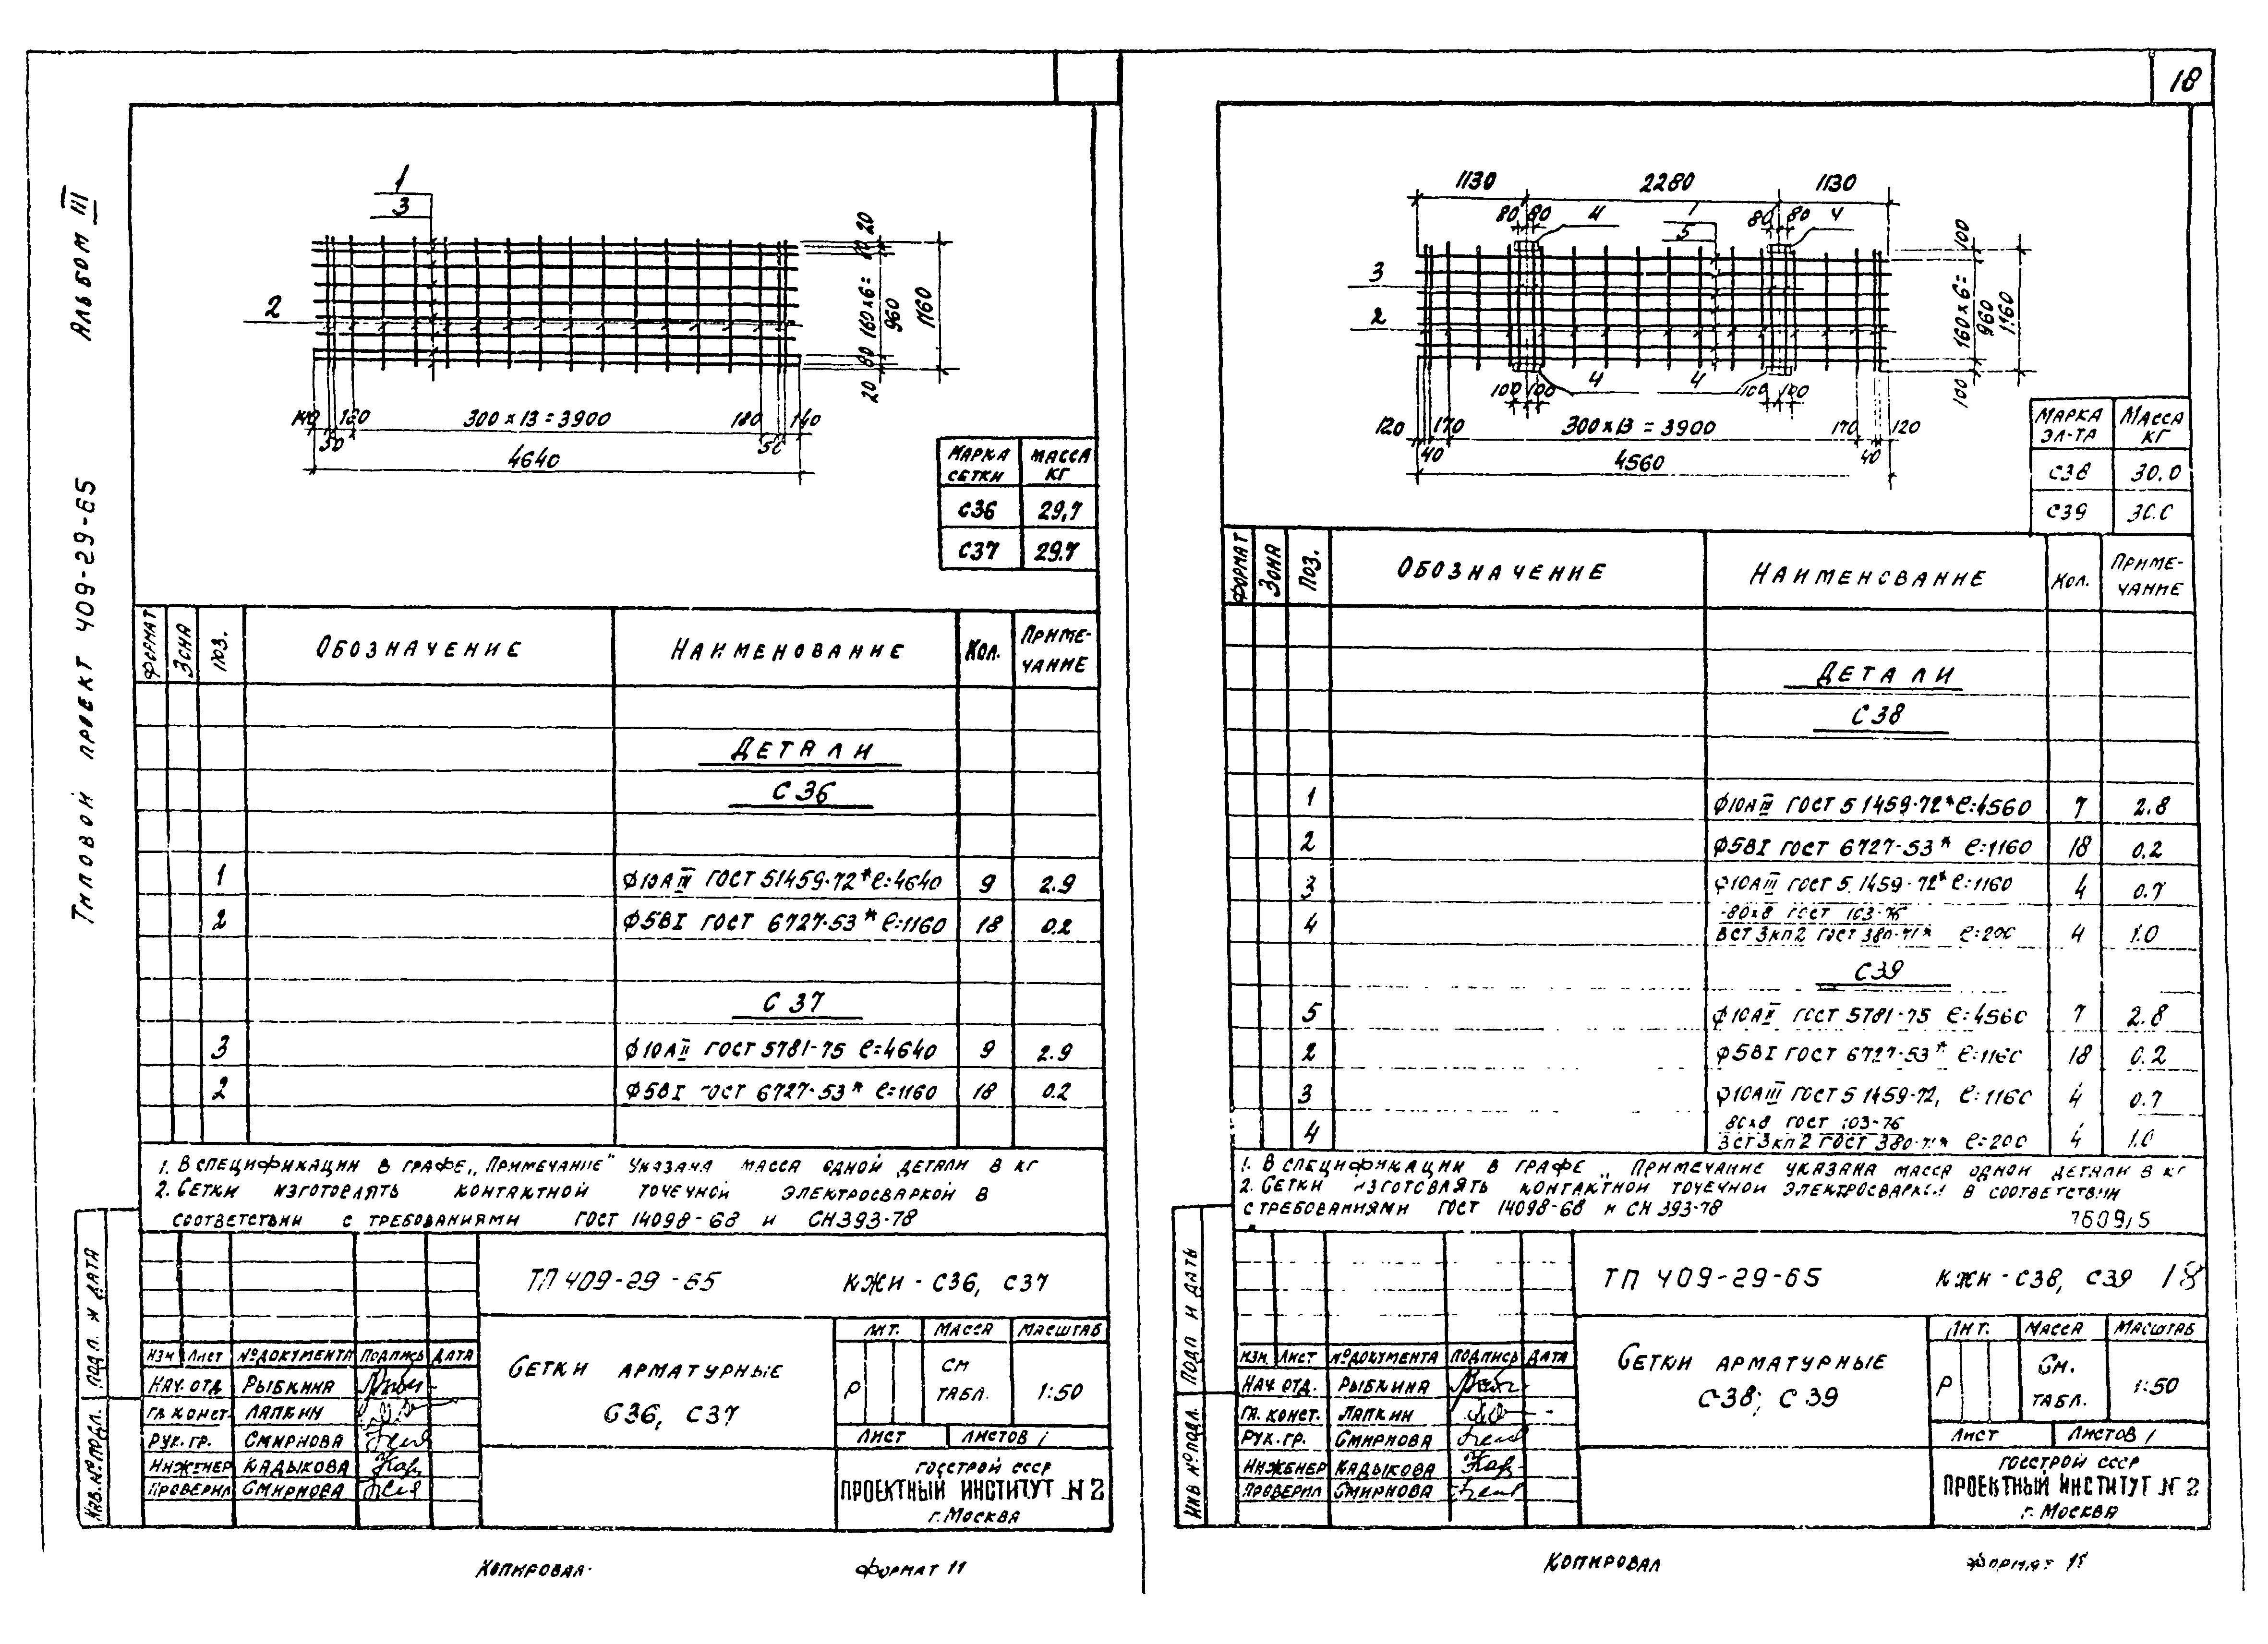 Альбом III
Типовой проект 409-29-65
1
3
2
20
80
160×6=
960
80
20
1160
140
50
180
300×13=3900
180
50
140
4640
МАРКА СЕТКИ МАССА КГ
С36 29,7
С37 29.7
ФОРМАТ ЗОНА ПОЗ. ОБОЗНАЧЕНИЕ НАИМЕНОВАНИЕ КОЛ. ПРИМЕ-
ЧАНИЕ
ДЕТАЛИ
С36
1 Ф10АIII ГОСТ 5 1459-72* ℓ=4640 9 2.9
2 Ф5ВI ГОСТ 6727-53* ℓ=1160 18 0.2
С37
3 Ф10АII ГОСТ 5781-75 ℓ=4640 9 2.9
2 Ф5ВI ГОСТ 6727-53* ℓ=1160 18 0.2
1. В СПЕЦИФИКАЦИИ В ГРАФЕ „ПРИМЕЧАНИЕ" УКАЗАНА МАССА ОДНОЙ ДЕТАЛИ В КГ
2. СЕТКИ ИЗГОТОВЛЯТЬ КОНТАКТНОЙ ТОЧЕЧНОЙ ЭЛЕКТРОСВАРКОЙ В
СООТВЕТСТВИИ С ТРЕБОВАНИЯМИ ГОСТ 14098-68 И СН393-78
ТП 409-29-65 КЖИ - С36, С37
ИЗМ ЛИСТ № ДОКУМЕНТА ПОДПИСЬ ДАТА
НАЧ. ОТД РЫБКИНА
ГЛ КОНСТ. ЛАПКИН
РУК. ГР. СМИРНОВА
ИНЖЕНЕР КАДЫКОВА
ПРОВЕРИЛ СМИРНОВА
СЕТКИ АРМАТУРНЫЕ
С36, С37
ЛИТ. МАССА МАСШТАБ
Р СМ ТАБЛ. 1:50
ЛИСТ ЛИСТОВ 1
ГОССТРОЙ СССР
ПРОЕКТНЫЙ ИНСТИТУТ №2
г. МОСКВА
ИНВ. № ПОДЛ. ПОДП. И ДАТА
КОПИРОВАЛ ФОРМАТ 11
18
1130 2280 1130
80 80 4 1 80 80 4
5
3
2
100 100 4 4 100 100
100
160×6=
960
1160
100
120 170 300×13=3900 170 120
40 40
4560
МАРКА ЭЛ-ТА МАССА КГ
С38 30.0
С39 30.0
ФОРМАТ ЗОНА ПОЗ. ОБОЗНАЧЕНИЕ НАИМЕНОВАНИЕ КОЛ. ПРИМЕ-
ЧАНИЕ
ДЕТАЛИ
С38
1 Ф10АIII ГОСТ 5 1459-72* ℓ=4560 7 2.8
2 Ф5ВI ГОСТ 6727-53* ℓ=1160 18 0.2
3 Ф10АIII ГОСТ 5 1459-72* ℓ=1160 4 0.7
-80×8 ГОСТ 103-76
4 ВСТ3кп2 ГОСТ 380-71* ℓ=200 4 1.0
С39
5 Ф10АII ГОСТ 5781-75 ℓ=4560 7 2.8
2 Ф5ВI ГОСТ 6727-53* ℓ=1160 18 0.2
3 Ф10АIII ГОСТ 5 1459-72, ℓ=1160 4 0.7
80×8 ГОСТ 103-76
4 ВСТ3кп2 ГОСТ 380-71* ℓ=200 4 1.0
1. В СПЕЦИФИКАЦИИ В ГРАФЕ „ПРИМЕЧАНИЕ УКАЗАНА МАССА ОДНОЙ ДЕТАЛИ В КГ
2. СЕТКИ ИЗГОТОВЛЯТЬ КОНТАКТНОЙ ТОЧЕЧНОЙ ЭЛЕКТРОСВАРКОЙ В СООТВЕТСТВИИ
С ТРЕБОВАНИЯМИ ГОСТ 14098-68 И СН 393-78
7609/5
ТП 409-29-65 КЖИ - С38, С39 18
ИЗМ. ЛИСТ № ДОКУМЕНТА ПОДПИСЬ ДАТА
НАЧ. ОТД. РЫБКИНА
ГЛ. КОНСТ. ЛАПКИН
РУК. ГР. СМИРНОВА
ИНЖЕНЕР КАДЫКОВА
ПРОВЕРИЛ СМИРНОВА
СЕТКИ АРМАТУРНЫЕ
С38, С39
ЛИТ. МАССА МАСШТАБ
Р См. ТАБЛ. 1:50
ЛИСТ ЛИСТОВ 1
ГОССТРОЙ СССР
ПРОЕКТНЫЙ ИНСТИТУТ №2
г. МОСКВА
ИНВ № ПОДЛ. ПОДП И ДАТЬ
КОПИРОВАЛ ФОРМАТ 11